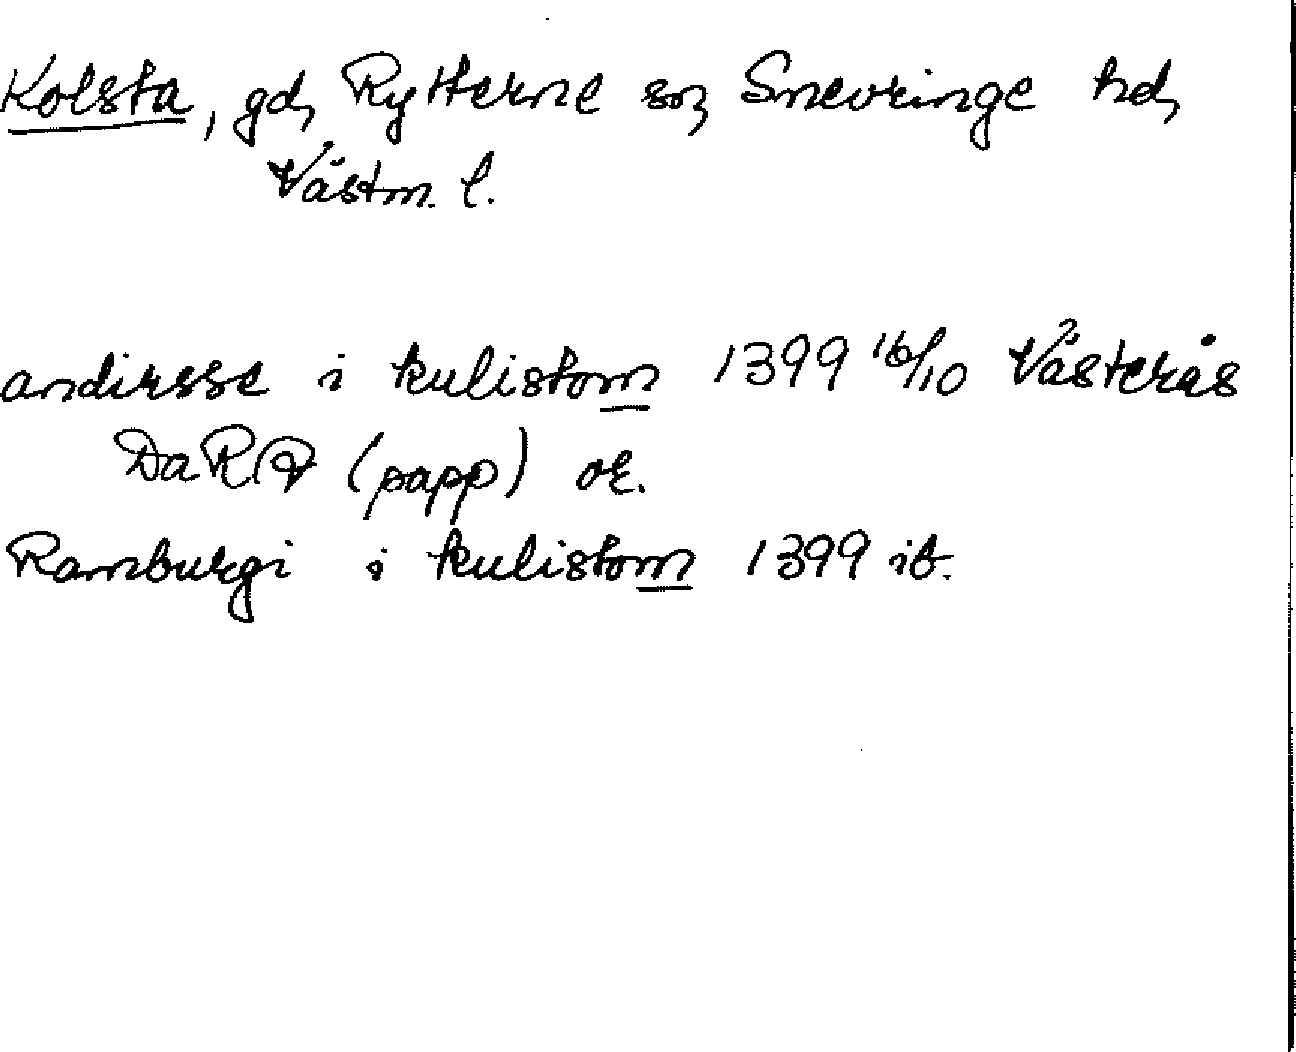 Kolsta, gd, Rytterne sn, Snevringe hd,
Västm. l.
andirsse i kulistom 1399 16/10 Västerås
DaRA (papp) or.
Ramburgi i kulistom 1399 ib.